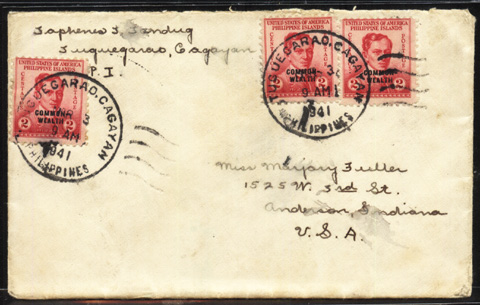 Saphenes S. Sandug
Tuguegarao, Cagayan
P. I.
UNITED STATES OF AMERICA
PHILIPPINE ISLANDS
COMMON
WEALTH
2 2
TUGUEGARAO, CAGAYAN
9 AM
1941
PHILIPPINES
UNITED STATES OF AMERICA
PHILIPPINE ISLANDS
COMMON
WEALTH
2
UNITED STATES OF AMERICA
PHILIPPINE ISLANDS
COMMON
WEALTH
2
TUGUEGARAO, CAGAYAN
9 AM
1941
PHILIPPINES
Miss Marjory Fuller
1525 W. 3rd St.
Anderson, Indiana
U. S. A.